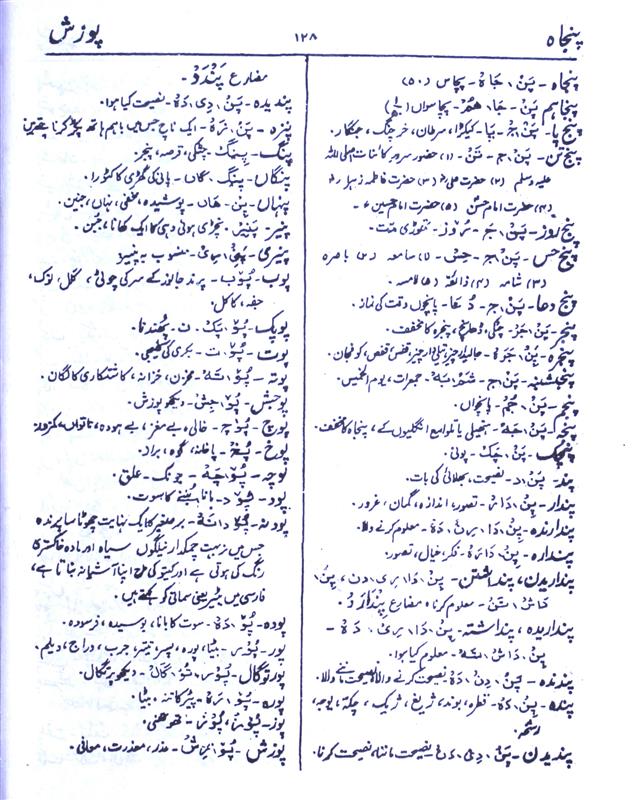 پنجاہ
۱۲۸
پوزش
پنجاہ - پَنْ، جَا، ہْ - پچاس (۵۰)
پنجاہم پَن - جَا، ھُمْ - پچاسواں
پنج پا - پَنْ، جْ - پَا - کیکڑا، سرطان، خرچنگ، جنگار.
پنج تن - پَنْ، جْ - تَنْ - (۱) حضور سرور کائنات صلی اللہ
علیہ وسلم (۲) حضرت علیؓ (۳) حضرت فاطمہ زہراؓ
(۴) حضرت امام حسنؓ (۵) حضرت امام حسینؓ
پنج روز - پَنْ، جْ - رُوْز - تھوڑی مدت.
پنج حس - پَنْ، جْ - حِسْ - (۱) سامعہ (۲) باصرہ
(۳) شامہ (۴) ذائقہ (۵) لامسہ.
پنج دعا - پَنْ، جْ - دُ، عَا - پانچوں وقت کی نماز.
پنجر - پَنْ، جَرْ - پنجرہ کا مخفف.
پنجرہ - پَنْ، جَرَہْ - قفس
پنجشنبہ - پَنْ، جْ - شَمْ، بَہْ - جمعرات، یوم الخمیس.
پنجم - پَنْ، جُمْ - پانچواں.
پنجہ - پَنْ، جَہْ - ہتھیلی یا تلوا مع انگلیوں کے، پنجاہ کا مخفف.
پنچک - پَنْ، چَکْ - پونی.
پند - پَنْ، دْ - نصیحت، بھلائی کی بات.
پندار - پِنْ، دَارْ - تصور، اندازہ، گمان، غرور.
پندارندہ - پِنْ، دَا، رِنْ، دَہْ - معلوم کرنے والا.
پندارہ - پِنْ، دَا، رَہْ - فکر، خیال، تصور.
پنداریدن، پنداشتن - پِنْ، دَا، رِی، دَن، پِنْ،
دَاشْ، تَنْ - معلوم کرنا، مضارع پِنْدَارَدْ.
پنداریدہ، پنداشتہ - پِنْ، دَا، رِیْ، دَہْ -
پِنْ، دَاشْ، تَہْ - معلوم کیا ہوا.
پندندہ - پَنْ، دِنْ، دَہْ نصیحت کرنے والا، نصیحت ماننے والا.
پندہ - پِنْ، دَہْ - قطرہ، بوند
پندیدن - پَنْ، دِیْ، دَنْ نصیحت ماننا، نصیحت کرنا.
مضارع پَنْدَدْ -
پندیدہ - پَنْ، دِی، دَہْ - نصیحت کیا ہوا.
پنزہ - پَنْ، زَہْ - ایک ناچ جس میں باہم ہاتھ پکڑ کر ناچتے ہیں
پنگ - پِنْگ
پنگاں - پِنْگ، گاں - پانی کی گھڑی کا کٹورا.
پنہاں - پِنْ، ھَاں - پوشیدہ، مخفی، نہاں، جنین.
پنیر - پَنِیْر - نچڑی ہوئی دہی کا ایک کھانا، جُبن.
پنیری - منسوب بہ پنیر
پوب - پُوْب - پرند جانور کے سر کی چوٹی، کلغی،
کاکل.
پوپک - پُوْ، پَکْ - پُھندنا.
پوت - پُوْ، ت - بکری کی کلیجی.
پوتہ - پُوْ، تَہْ - مخزن، خزانہ، کاشتکاری کا لگان.
پوجش - پُوْ، جِشْ - دیکھو پوزش.
پوچ - پُوْ، چ - خالی، بے مغز، بے ہودہ، ناتواں، کمزور.
پوخ - پُوْخْ - پاخانہ، گوہ، براز.
پوچہ - پُوْ، چَہْ - جونک - علق.
پود - پُوْ، د - بانا، بُننے کا سوت.
پودنہ - برصغیر کا ایک نہایت چھوٹا سا پرندہ
جس میں نر بہت چمکدار نیلگوں سیاہ اور مادہ خاکستری
رنگ کی ہوتی ہے اور کپڑے کی طرح اپنا آشیانہ بناتا ہے،
پودہ - پُوْ، دَہْ - سوت کا بانا، بوسیدہ، فرسودہ.
پور - پُوْر - بیٹا، پورہ، پسر، تیتر، دراج، دیلم.
پورتوگال - پُوْر، تُوْ، گَال - دیکھو پرتگال.
پورہ - پُوْ، رَہْ - بیٹا.
پوز - پُوْز - تھوتھنی.
پوزش - پُوْ، زِشْ - عذر، معذرت، معافی.